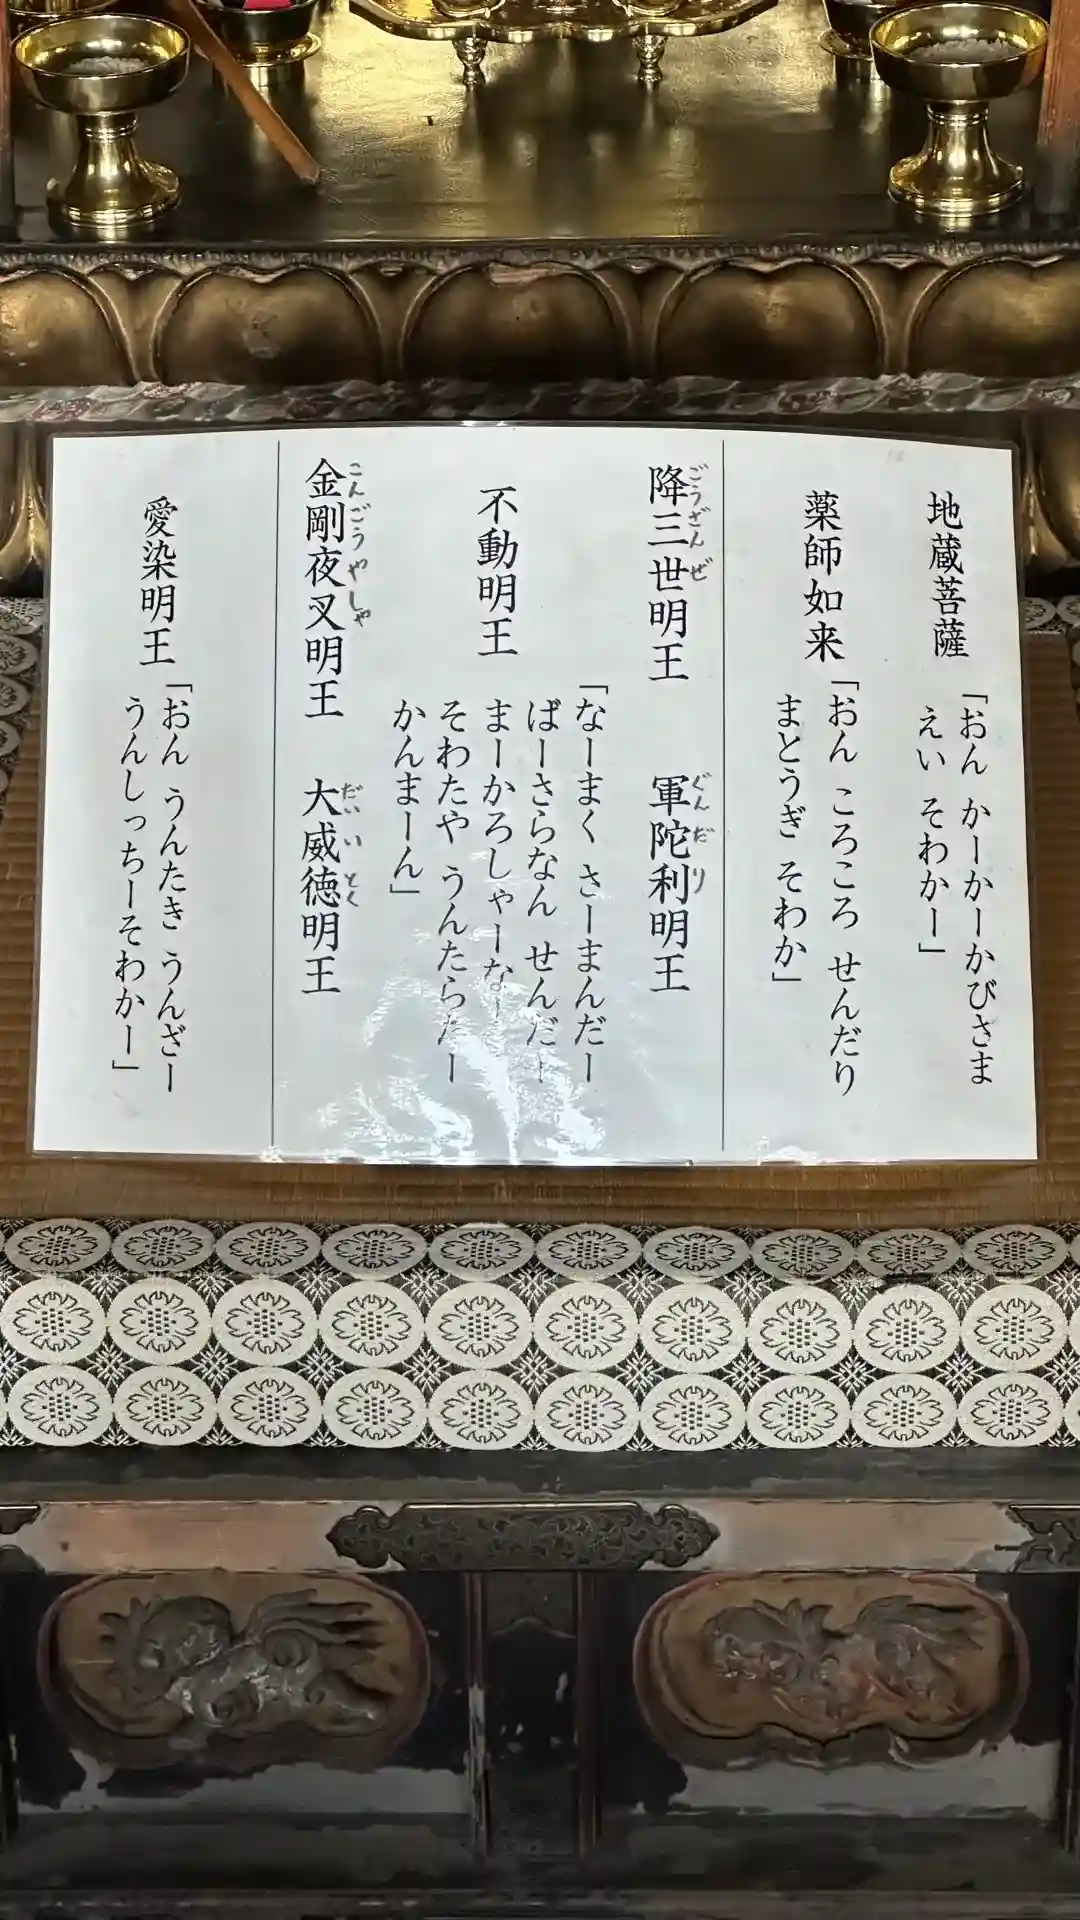 地蔵菩薩
「おん かーかーかびさま
えい そわかー」
薬師如来
「おん ころころ せんだり
まとうぎ そわか」
降三世明王 軍陀利明王
ごうざんぜ ぐんだり
不動明王
「なーまく さーまんだー
ばーさらなん せんだー
まーかろしゃーなー
そわたや うんたらたー
かんまーん」
金剛夜叉明王 大威徳明王
こんごうやしゃ だいいとく
愛染明王
「おん うんたき うんざー
うんしっちーそわかー」